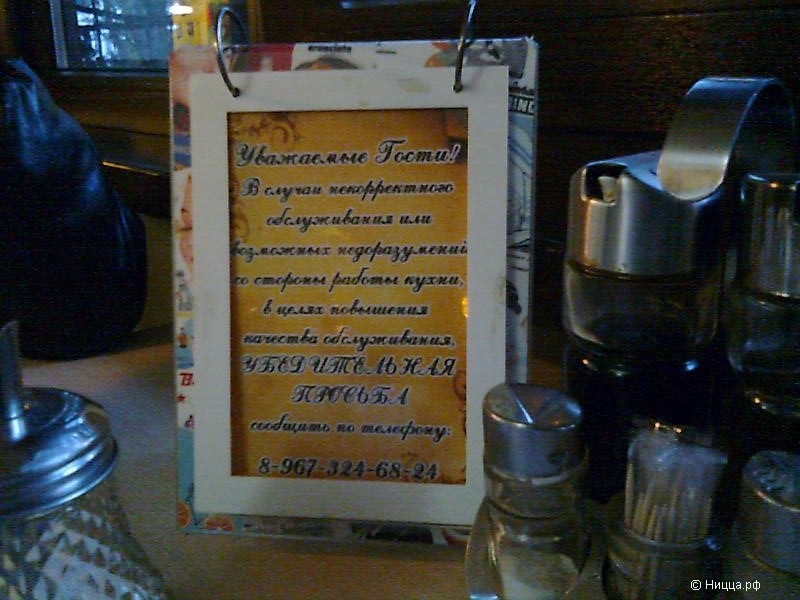 Уважаемые Гости!
В случаи некорректного
обслуживания или
возможных недоразумений
со стороны работы кухни,
в целях повышения
качества обслуживания,
УБЕДИТЕЛЬНАЯ
ПРОСЬБА
сообщить по телефону:
8-967-324-68-24
© Ницца.рф